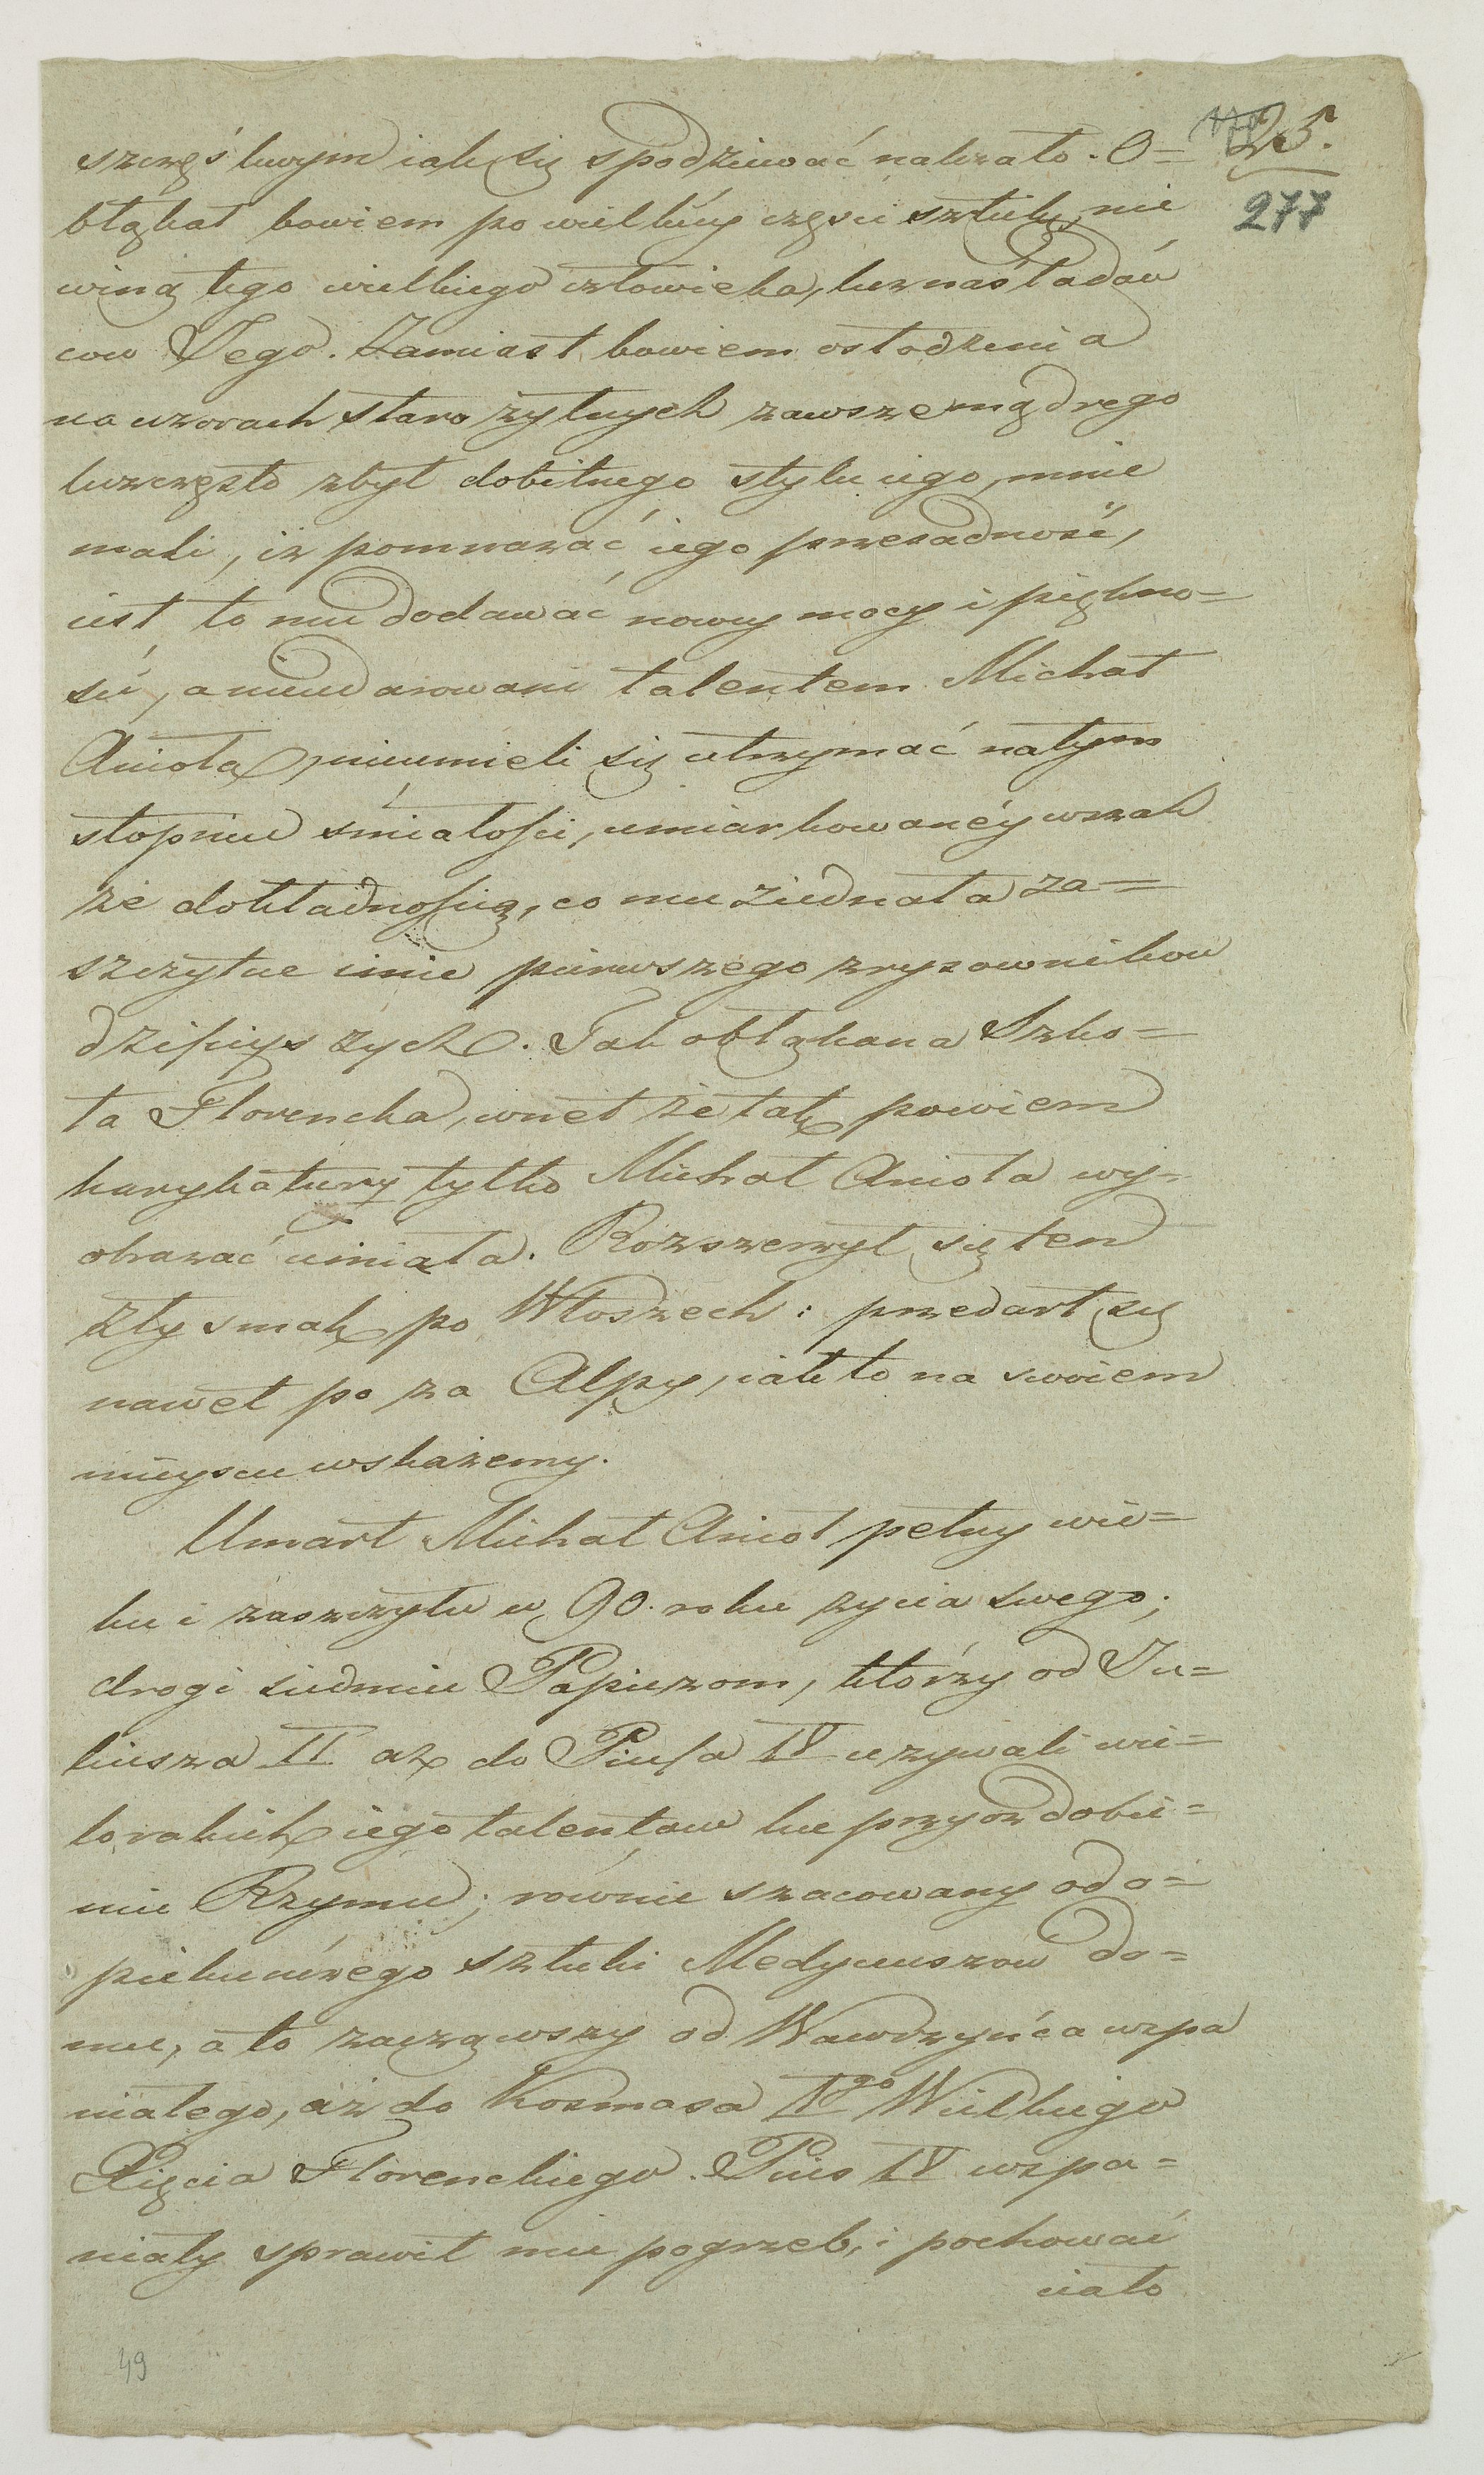 szczęśliwym iak się spodziewać należało. O=
25.
277
błąkał bowiem po wielkiéy części sztukę, nie
winą tego wielkiego człowieka, lecz naśladow
cow Jego. Zamiast bowiem osłodzenia
na wzorach staro żytnych zawsze mądrego
lecz często zbyt dobitnego stylu iego, mnie
mali, iż pomnażać iego przesadność,
iest to mu dodawać nowey mocy i piękno=
ści, a nieudarowani talentem Michał
Anioła, nieumieli się utrzymać na tym
stopniu śmiałości, umiarkowanéy wszak
że dokładnością, co mu ziednała za=
szczytne imie pierwszego z rysownikow
dzisieyszych. Tak obłąkana Szko=
ła Florencka, wnet że tak powiem
karykatury tylko Michał Anioła wy=
obrażać umiała. Rozszerzył się ten
zły smak po Włoszech: przedarł się
nawet po za Alpy, iak to na swoiem
mieyscu wskażemy.
Umarł Michał Anioł pełny wie=
ku i zaszczytu w 90. roku życia swego;
drogi siedmiu Papieżom, którzy od Ju=
liusza II aż do Piusa IV używali wie=
lorakich iego talentow ku przyozdobie=
niu Rzymu; równie szacowany od o=
piekuńczego sztuki Medyceuszow do=
mu, a to zacząwszy od Wawrzyńca wspa
niałego, aż do Kosmasa Igo Wielkiego
Xięcia Florenckiego. Pius IV wspa=
niały sprawił mu pogrzeb, i pochować
ciało
49